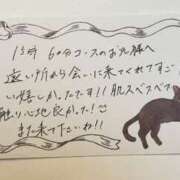 13時 60分コースのお兄様へ
遠い所から会いに来てくれてすご
い嬉しかったです!! 肌スベスベで
触り心地良かった!
また来て下さいね!!